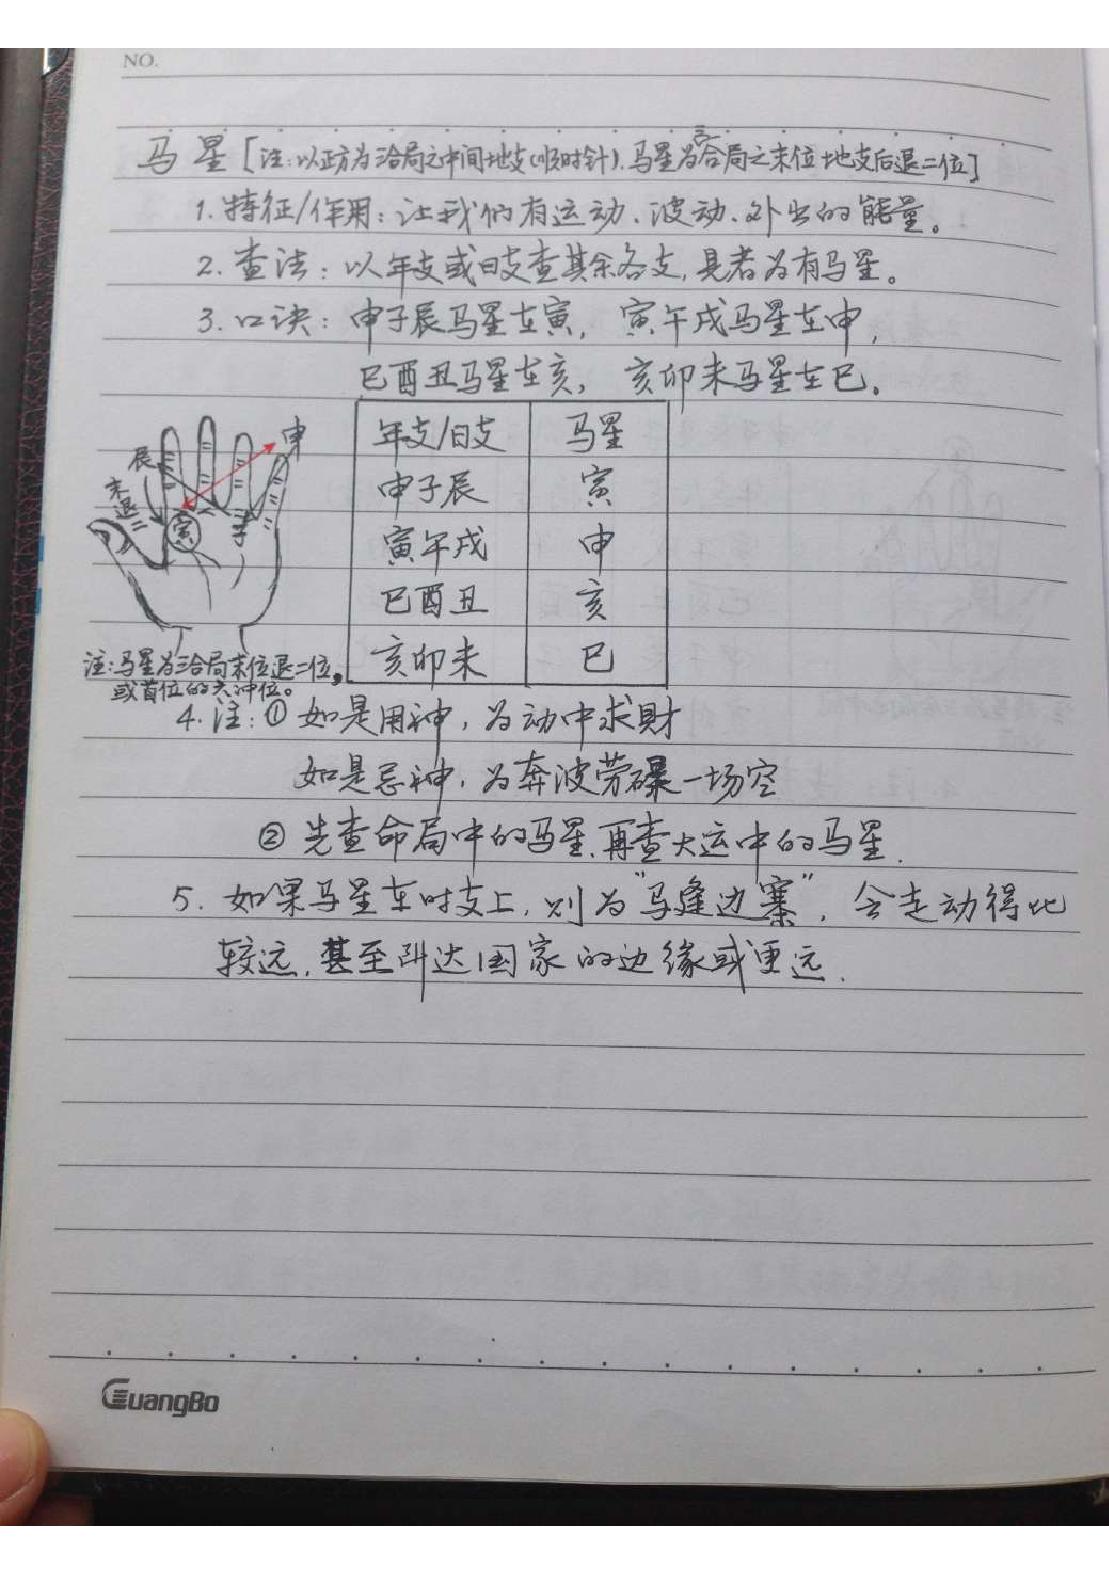 NO.
马星[注:以正方为三合局之中间地支(顺时针),马星为三合局之末位地支后退二位]
1. 特征/作用:让我们有运动、波动、外出的能量。
2. 查法:以年支或日支查其余各支,见者为有马星。
3. 口诀:申子辰马星在寅,寅午戌马星在申,
巳酉丑马星在亥,亥卯未马星在巳。
申
辰
末退二
寅
子
年支/日支 马星
申子辰 寅
寅午戌 申
巳酉丑 亥
亥卯未 巳
注:马星为三合局末位退二位,
或首位的六冲位。
4. 注:① 如是用神,为动中求财
如是忌神,为奔波劳碌一场空
② 先查命局中的马星,再查大运中的马星.
5. 如果马星在时支上,则为"马逢边寨",会走动得比
较远,甚至到达国家的边缘或更远.
GuangBo